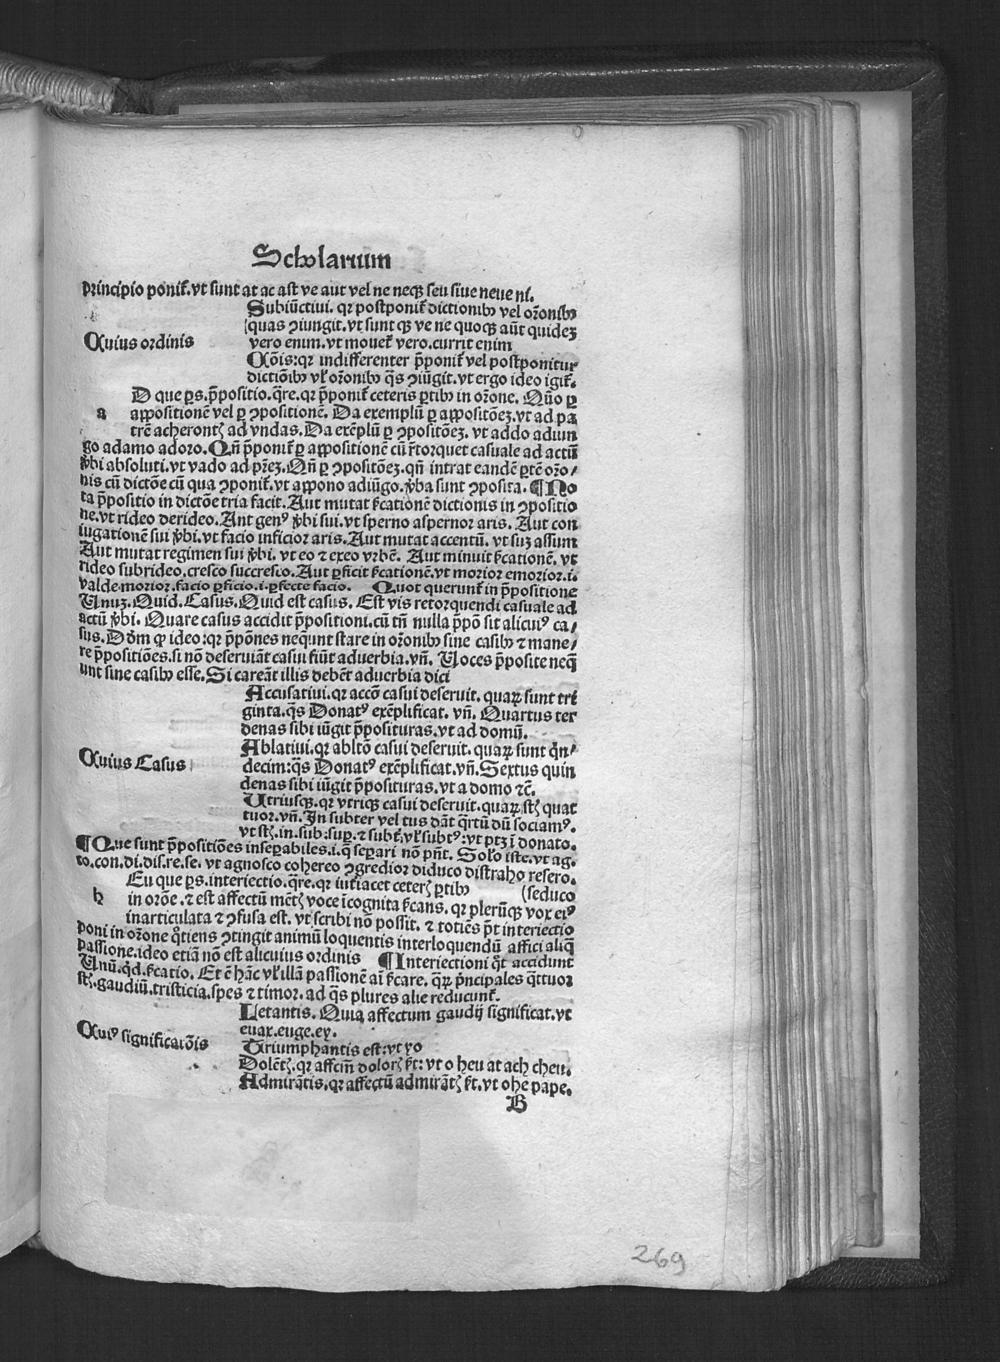 Scholarium
principio poniť. vt sunt at ac ast ve aut vel ne neqꝫ seu siue neue ni.
Subiūctiui. qꝛ postponiť dictionibꝰ vel oꝛ̄onibꝰ
quas ↄiungit. vt sunt qꝫ ve ne quoqꝫ aūt quidez
Cuius ordinis
vero enim. vt mouet̄ vero. currit enim
Cōis: qꝛ indifferenter p̄poniť vel postponitur
dictiōibꝰ vl̓ oꝛ̄onibꝰ q̄s ↄiūgit. vt ergo ideo igiť.
D que ꝑs. p̄positio. q̄re. qꝛ p̄poniť ceteris ꝑtibꝰ in oꝛ̄one. Qūo ꝑ
a appositionē vel ꝑ ↄpositionē. Da exemplū ꝑ appositōez. vt ad pa
trē acherontꝭ ad vndas. Da exēplū ꝑ ↄpositōez. vt addo adiun
go adamo adoro. Qn̄ p̄poniť ꝑ appositionē cū r̄torquet casuale ad actū
v̄bi absoluti. vt vado ad pr̄ez. Qn̄ ꝑ ↄpositōez. qn̄ intrat eandē ꝑtē oꝛ̄o/
nis cū dictōe cū qua ↄponiť. vt appono adiūgo. v̄ba sunt ↄposita. ¶No
ta p̄positio in dictōe tria facit. Aut mutat ſ̄cationē dictionis in ↄpositio
ne. vt rideo derideo. Ant genꝰ v̄bi sui. vt sperno aspernor aris. Aut con
iugationē sui v̄bi. vt facio inficior aris. Aut mutat accentū. vt suz assum
Aut mutat regimen sui v̄bi. vt eo ⁊ exeo vrbē. Aut minuit ſ̄cationē. vt
rideo subrideo. cresco succresco. Aut ꝑficit ſ̄cationē. vt morior emorior. i.
valde morior. facio ꝑficio. i. ꝑfecte facio. Quot querunť in p̄positione
Unuz. Quid. Casus. Quid est casus. Est vis retorquendi casuale ad
actū v̄bi. Quare casus accidit p̄positioni. cū tn̄ nulla p̄pō sit alicuiꝰ ca/
sus. Dōm ꝙ ideo: qꝛ p̄pōnes nequnt stare in oꝛ̄onibꝰ sine casibꝰ ⁊ mane/
re p̄positiōes. si nō deseruiāt casui fiūt aduerbia. vn̄. Uoces p̄posite neqū
unt sine casibꝰ esse. Si careāt illis debēt aduerbia dici
Accusatiui. qꝛ accō casui deseruit. quaꝝ sunt tri
ginta. q̄s Donatꝰ exēplificat. vn̄. Quartus ter
denas sibi iūgit p̄posituras. vt ad domū.
Ablatiui. qꝛ abltō casui deseruit. quaꝝ sunt q̄n/
Cuius Casus
decim: q̄s Donatꝰ exēplificat. vn̄. Sextus quin
denas sibi iūgit p̄posituras. vt a domo ⁊c̄.
Utriusqꝫ. qꝛ vtriqꝫ casui deseruit. quaꝝ st̄ꝭ quat
tuor. vn̄. In subter vel tus dāt q̄rtū dū sociamꝰ.
vt st̄ꝭ. in. sub: suꝑ. ⁊ subt̄. vl̓ subtꝰ: vt ptꝫ ī donato.
¶Que sunt p̄positiōes inseꝑabiles. i. q̄ seꝑari nō pn̄t. Solo iste. vt ag/
to. con. di. dis. re. se. vt agnosco cohereo ↄgredior diduco distraho resero.
Eu que ꝑs. interiectio. q̄re. qꝛ iutiacet ceterꝭ ꝑtibꝰ (seduco
h in oꝛōe. ⁊ est affectū mētꝭ voce īcognita ſ̄cans. qꝛ plerūqꝫ vox eiꝰ
inarticulata ⁊ ↄfusa est. vt scribi nō possit. ⁊ totiēs p̄t interiectio
poni in oꝛ̄one q̊tiens ↄtingit animū loquentis interloquendū affici aliq̄
passione. ideo etiā nō est alicuius ordinis ¶Interiectioni q̊t accidunt
Unū. q̇d. ſ̄catio. Et ē hāc vl̓ illā passionē ai ſ̄care. q̄ꝝ p̄ncipales q̄ttuor
st̄ꝭ. gaudiū. tristicia. spes ⁊ timor. ad q̄s plures alie reducunť.
Letantis. Quia affectum gaudij significat. vt
euax. euge. ey.
Cuiꝰ significatōis
Triumphantis est: vt yo
Dolētꝭ. qꝛ affcm̄ dolorꝭ ſ̄t: vt o heu at ach eheu.
Admirātis. qꝛ affectū admirātꝭ ſ̄t. vt ohe pape.
B
269